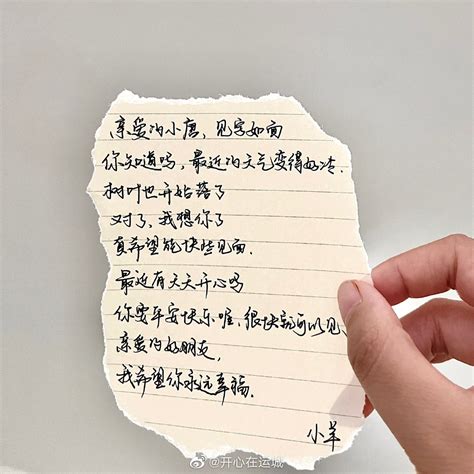 亲爱的小唐，见字如面
你知道吗，最近的天气变得好冷.
树叶也开始落了
对了，我想你了
真希望能快些见面.
最近有天天开心吗
你要平安快乐喔，很快就可以见、
亲爱的好朋友，
我希望你永远幸福.
小羊
@开心在运城